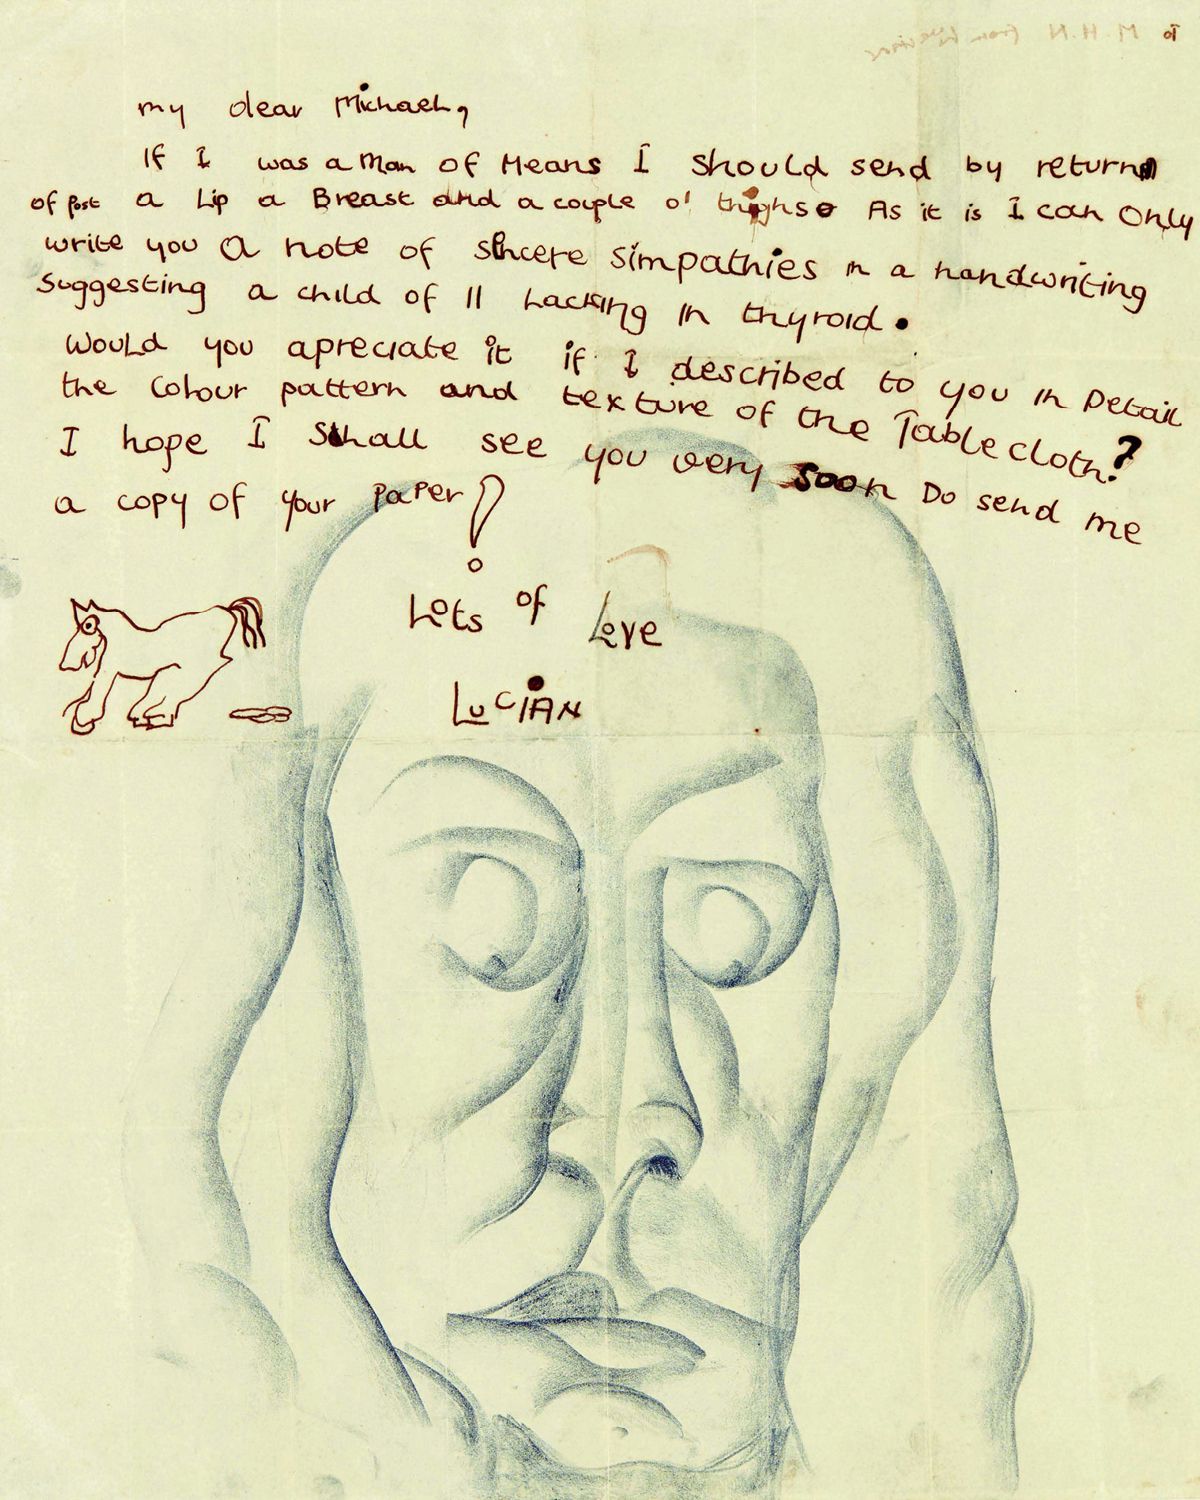 my dear Michael,
If I was a Man of Means I should send by return
of post a Lip a Breast and a couple o' thighs. As it is I can Only
write you a note of sincere simpathies in a handwriting
suggesting a child of 11 Lacking in thyroid.
would you apreciate it if I described to you in Detail
the Colour pattern and texture of the Table cloth?
I hope I Shall see you very soon Do send me
a copy of your paper!
Lots of Love
LUCIAN